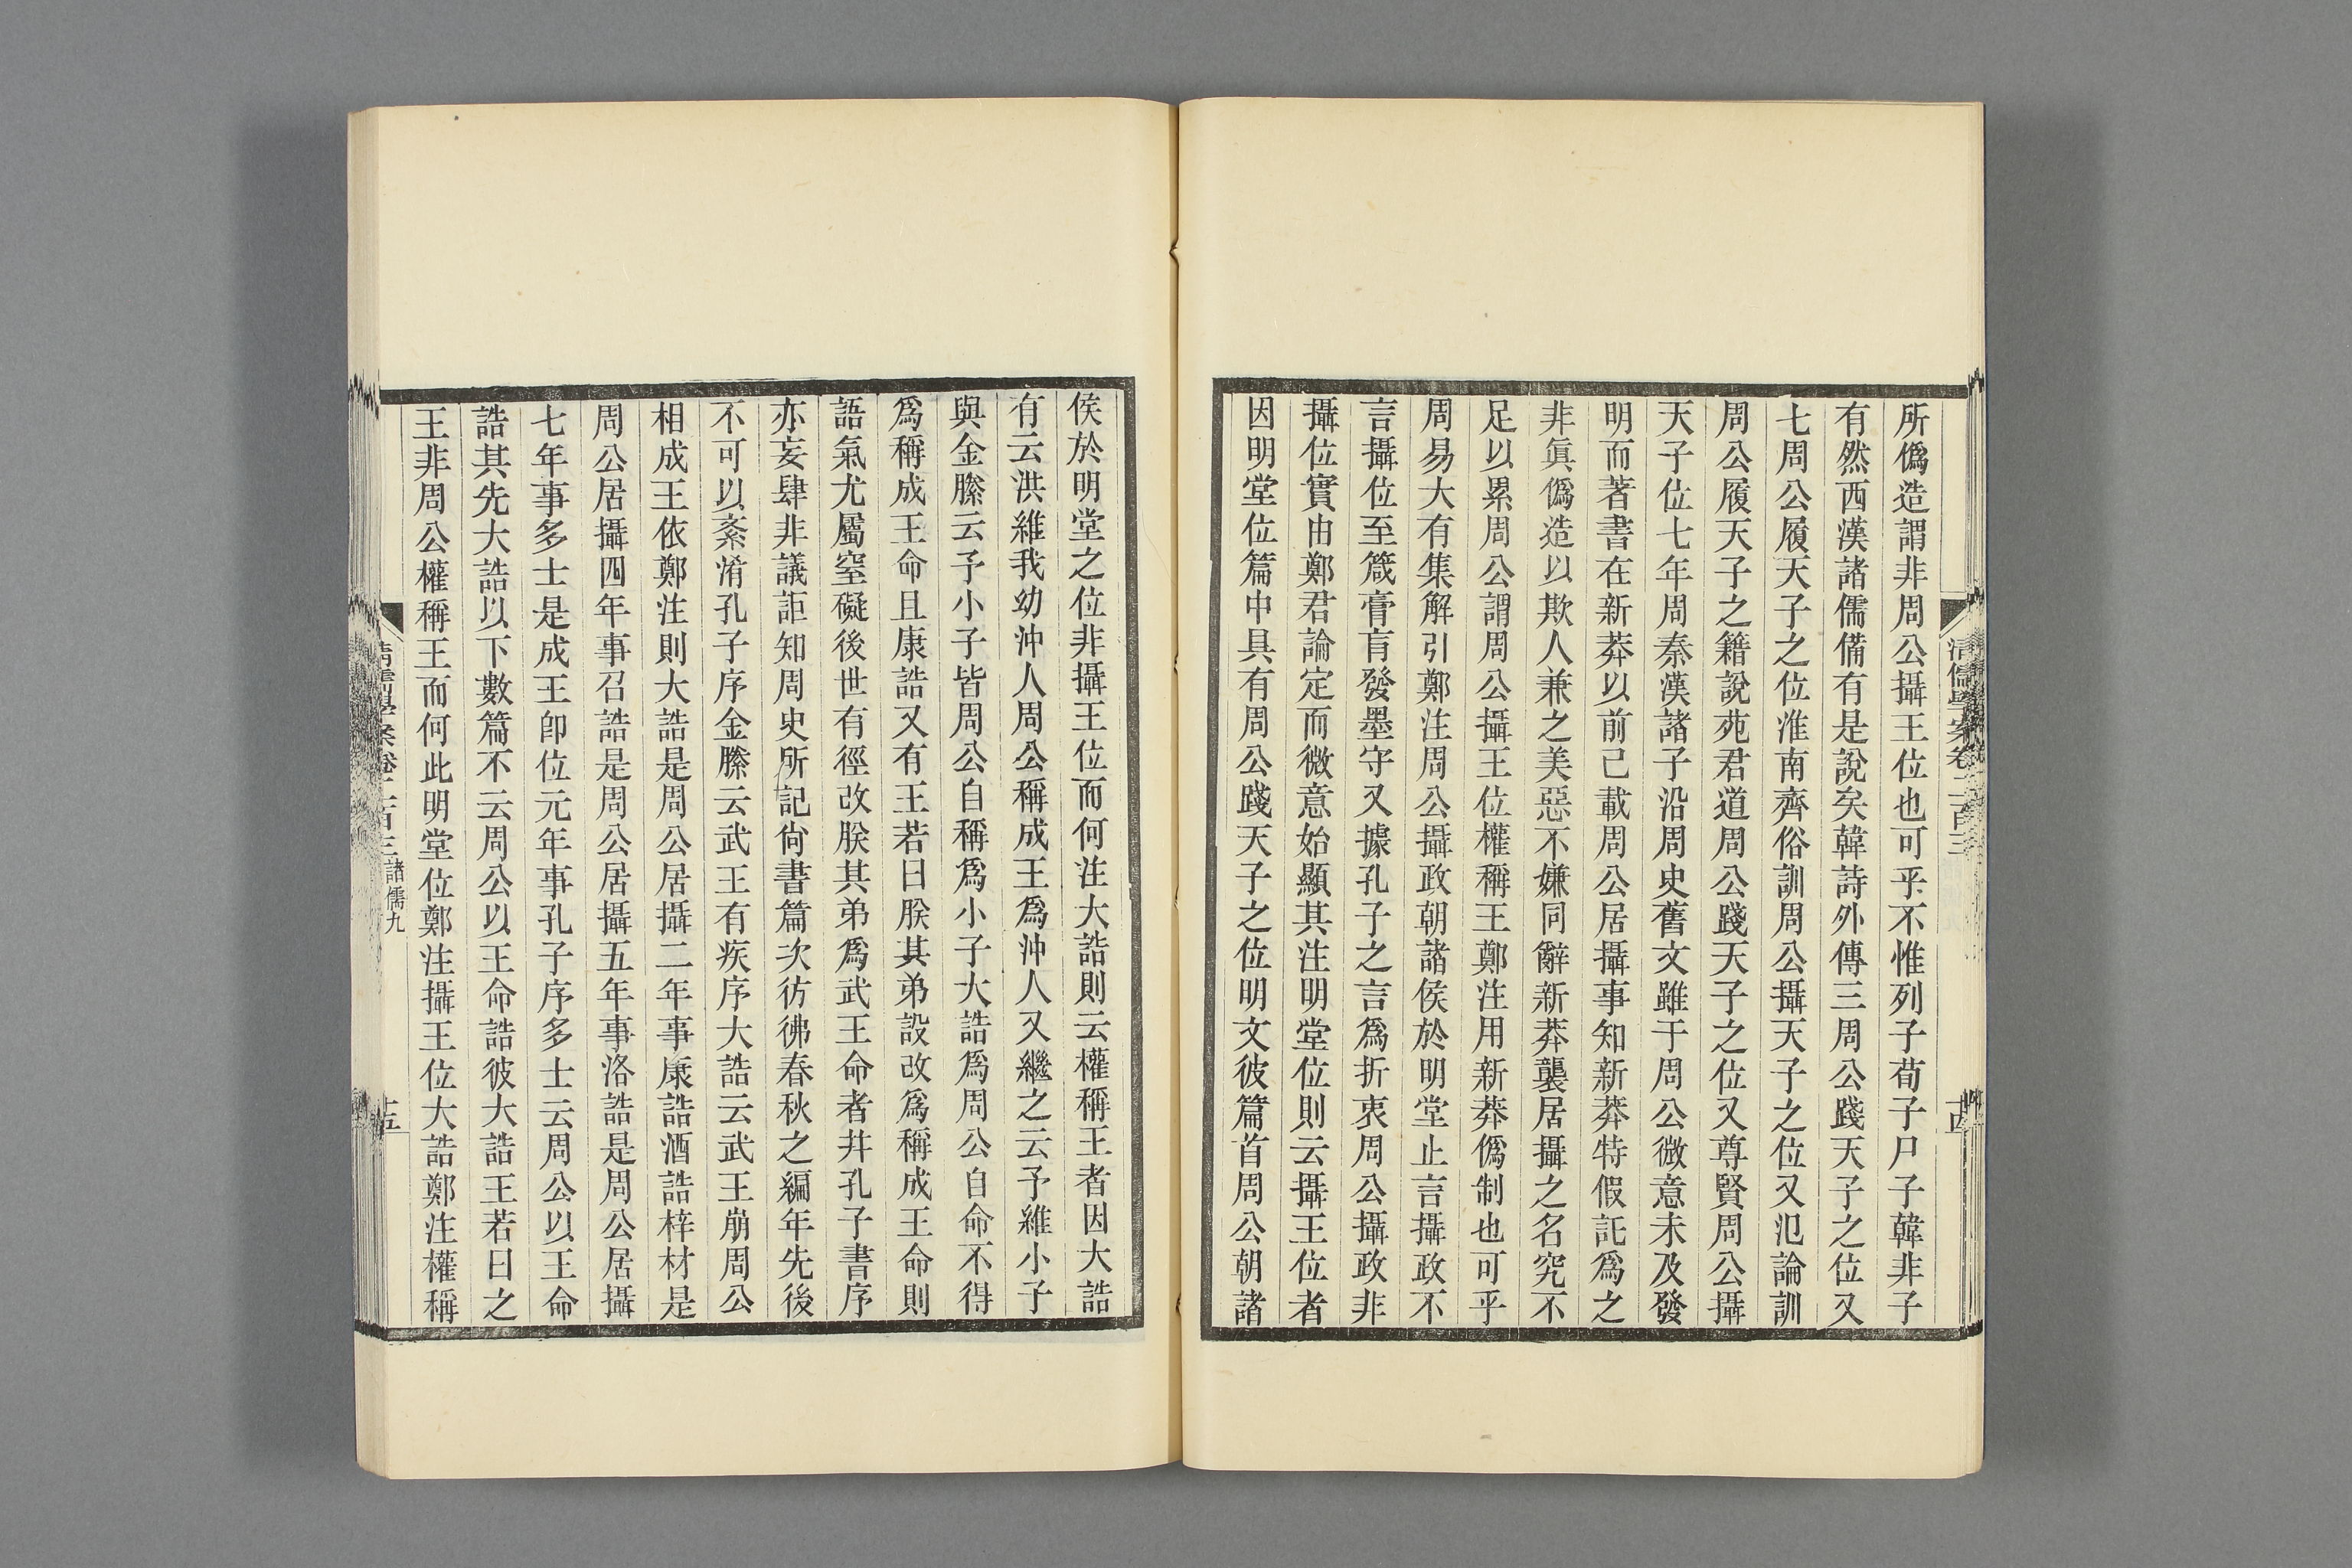 清儒學案卷二百三
十四
所僞造謂非周公攝王位也可乎不惟列子荀子尸子韓非子
有然西漢諸儒備有是說矣韓詩外傳三周公踐天子之位又
七周公履天子之位淮南齊俗訓周公攝天子之位又氾論訓
周公履天子之籍說苑君道周公踐天子之位又尊賢周公攝
天子位七年周秦漢諸子沿周史舊文雖于周公微意未及發
明而著書在新莽以前己載周公居攝事知新莽特假託爲之
非眞僞造以欺人兼之美惡不嫌同辭新莽襲居攝之名究不
足以累周公謂周公攝王位權稱王鄭注用新莽僞制也可乎
周易大有集解引鄭注周公攝政朝諸侯於明堂止言攝政不
言攝位至箴膏肓發墨守又據孔子之言爲折衷周公攝政非
攝位實由鄭君論定而微意始顯其注明堂位則云攝王位者
因明堂位篇中具有周公踐天子之位明文彼篇首周公朝諸
侯於明堂之位非攝王位而何注大誥則云權稱王者因大誥
有云洪維我幼沖人周公稱成王爲沖人又繼之云予維小子
與金縢云予小子皆周公自稱爲小子大誥爲周公自命不得
爲稱成王命且康誥又有王若曰朕其弟設改爲稱成王命則
語氣尤屬窒礙後世有徑改朕其弟爲武王命者幷孔子書序
亦妄肆非議詎知周史所記尙書篇次彷彿春秋之編年先後
不可以紊淆孔子序金縢云武王有疾序大誥云武王崩周公
相成王依鄭注則大誥是周公居攝二年事康誥酒誥梓材是
周公居攝四年事召誥是周公居攝五年事洛誥是周公居攝
七年事多士是成王卽位元年事孔子序多士云周公以王命
誥其先大誥以下數篇不云周公以王命誥彼大誥王若曰之
王非周公權稱王而何此明堂位鄭注攝王位大誥鄭注權稱
清儒學案卷二百三 諸儒九
十五